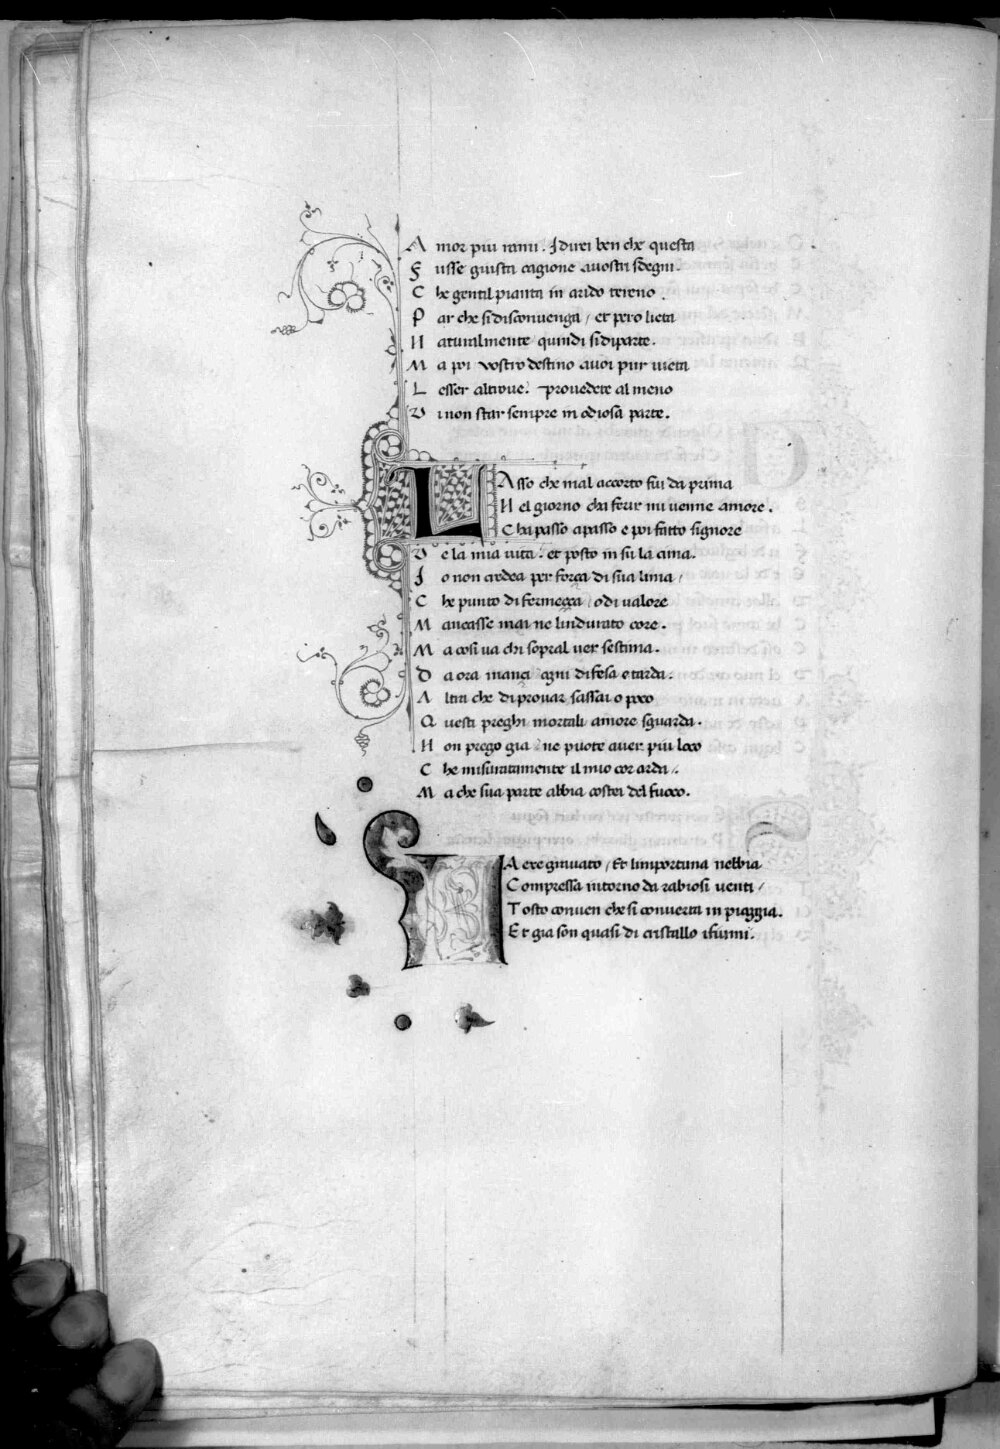 A mor piu rami. I direi ben che questa
F usse giusta cagione a uostri sdegni.
C he gentil pianta in arido tereno.
P ar che si disconuenga / et pero lieta
N aturalmente quindi si diparte.
M a poi vostro destino a uoi pur uieta
L esser altroue. prouedete al meno
V i non star sempre in odiosa parte.
L Asso che mal accorto fui da prima
N el giorno cha ferir mi uenne amore.
C ha passo a passo e poi fatto signore
D e la mia uita. et posto in su la cima.
I o non credea per força di sua lima /
C he punto di fermeçça / o di ualore
M ancasse mai ne lindurato core.
M a cosi ua chi sopral uer sestima.
D a ora inançi ogni difesa e tarda.
A ltra che di prouar sassai o poco
Q uesti preghi mortali amore sguarda.
N on prego gia / ne puote auer piu loco
C he misuratamente il mio cor arda /.
M a che sua parte abbia costei del fuoco.
L A ere grauato / Et limportuna nebbia
C ompressa intorno da rabiosi uenti /
T osto conuen che si conuerta in piaggia.
E t gia son quasi di cristallo i fiumi.